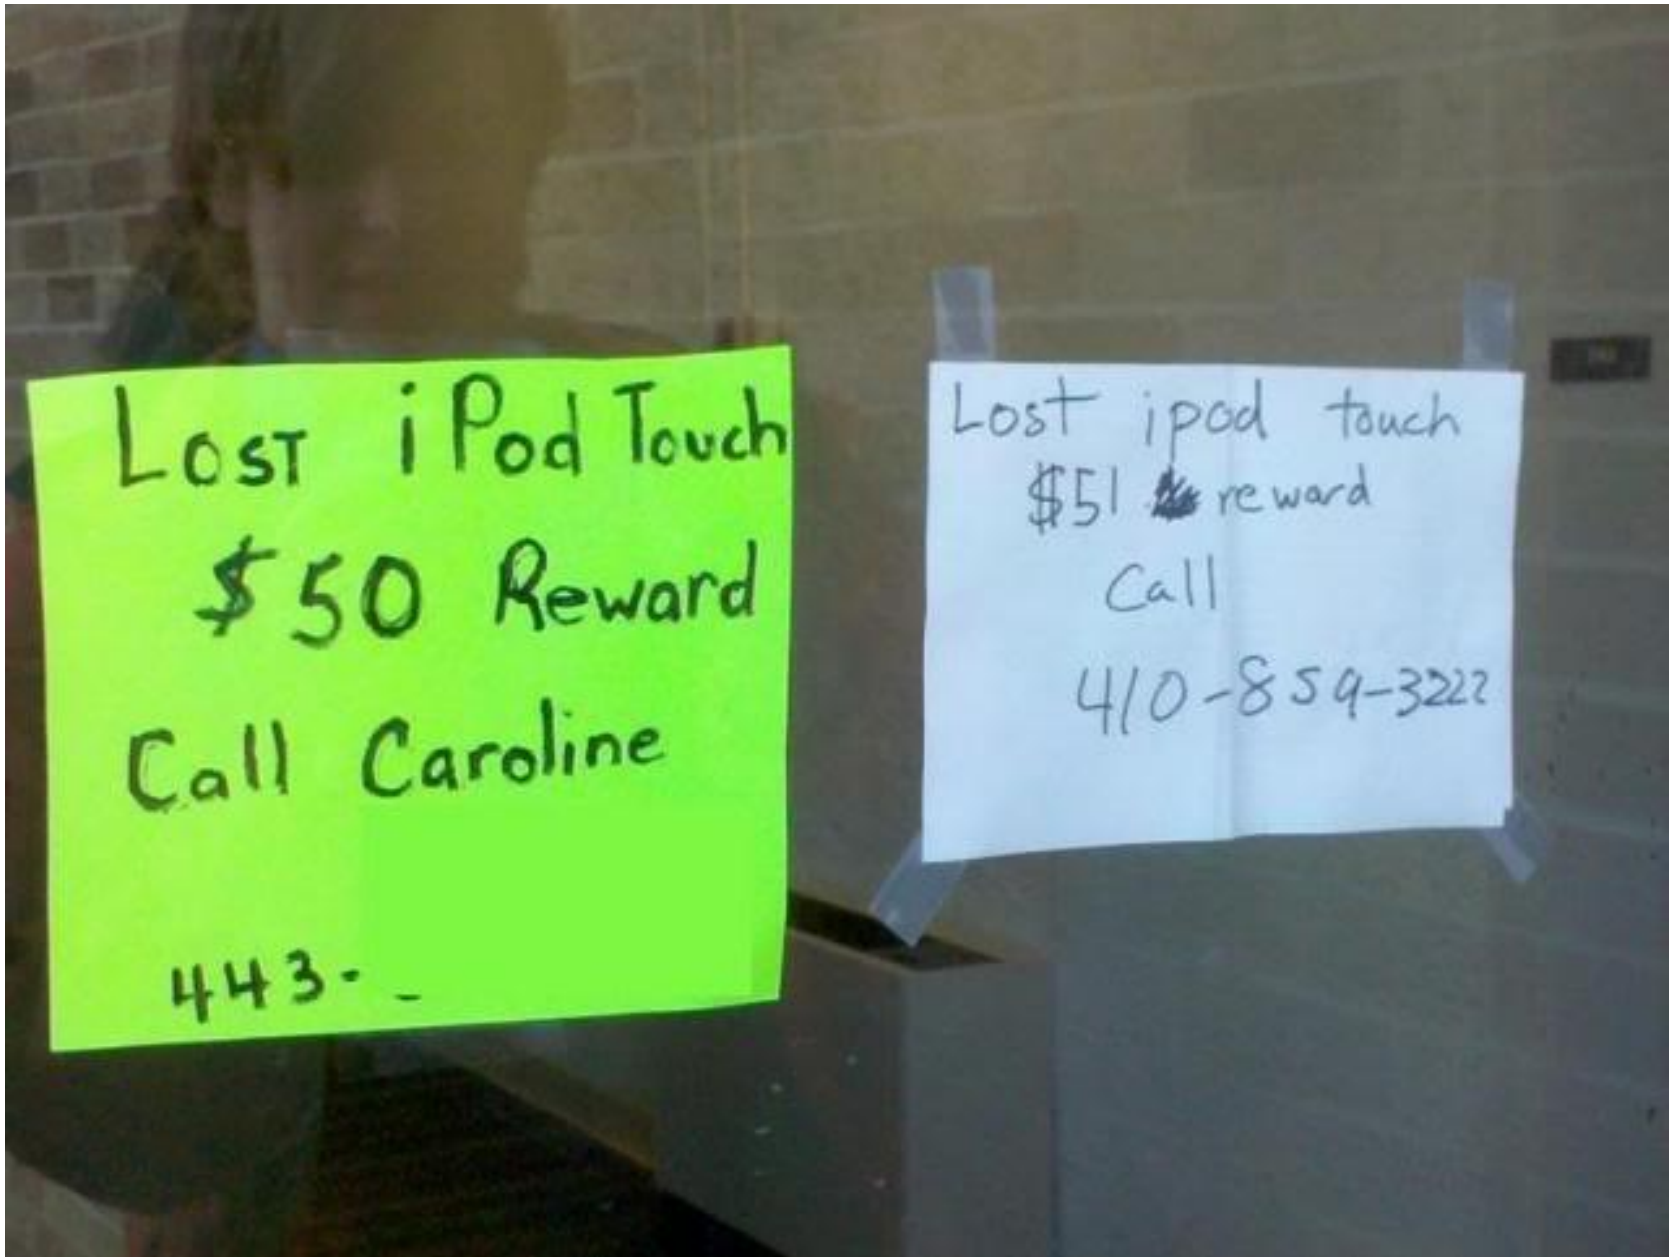 Lost iPod Touch
$50 Reward
Call Caroline
443-
Lost ipod touch
$51 reward
Call
410-859-3222